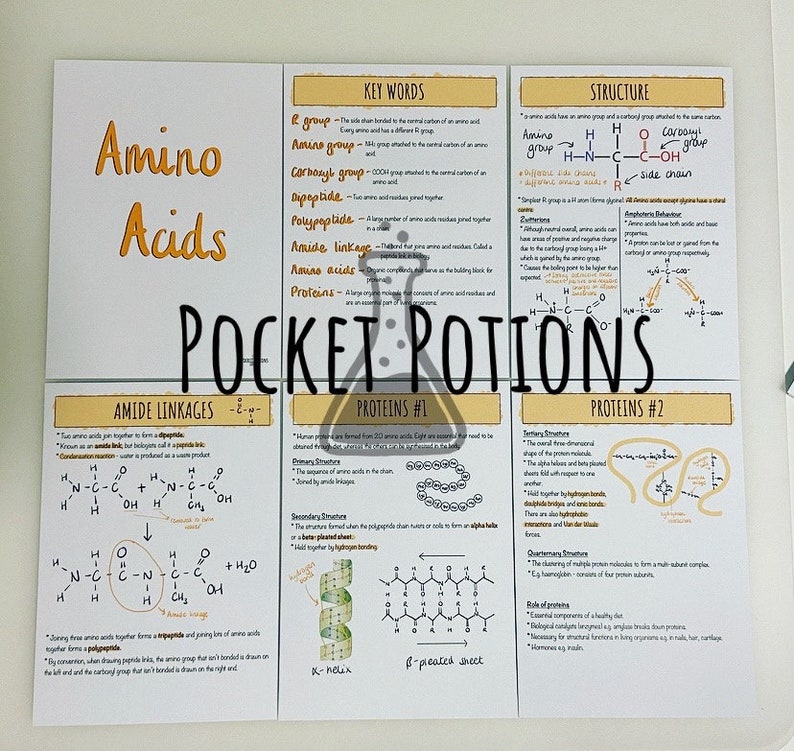 Amino
Acids
KEY WORDS
R group - The side chain bonded to the central carbon of an amino acid.
Every amino acid has a different R group.
Amino group - NH₂ group attached to the central carbon of an amino
acid.
Carboxyl group - COOH group attached to the central carbon of an
amino acid.
Dipeptide - Two amino acids joined together.
Polypeptide - A large number of amino acids residues joined together
in a chain.
Amide linkage - The bond that joins amino acid residues. Called a
peptide link in biology.
Amino acids - Organic compounds serve as the building block for
proteins.
Proteins - A large organic molecule that consists of amino acid residues and
are an essential part of living organisms.
STRUCTURE
* α-amino acids have an amino group and a carboxyl group attached to the same carbon.
Amino
group
H O Carboxyl
group
H-N-C-C-OH
H R
side chain
* Different side chains
= different amino acids *
* Simplest R group is a H atom (forms glycine). All Amino acids except glycine have a chiral
centre.
Zwitterions
* Although neutral overall, amino acids can
have areas of positive and negative
charge due to the carboxyl group losing a H+
which is gained by the amino group.
* Causes the boiling point to be higher than
expected.
Amphoteric Behaviour
* Amino acids have both acidic and basic
properties.
* A proton can be lost or gained from the
carboxyl or amino group respectively.
POCKET POTIONS
AMIDE LINKAGES
* Two amino acids join together to form a dipeptide.
* Known as an amide link, but biologists call it a peptide link.
* Condensation reaction - water is produced as a waste product.
removed to form
water
+ H₂O
Amide linkage
* Joining three amino acids together forms a tripeptide and joining lots of amino acids
together forms a polypeptide.
* By convention, when drawing peptide links, the amino group that isn't bonded is drawn on
the left end and the carboxyl group that isn't bonded is drawn on the right end.
PROTEINS #1
* Human proteins are formed from 20 amino acids. Eight are essential that need to be
obtained through diet, whereas the others can be synthesised in the body.
Primary Structure
* The sequence of amino acids in the chain.
* Joined by amide linkages.
Secondary Structure
* The structure formed when the polypeptide chain twists or coils to form an alpha helix
or a beta-pleated sheet.
* Held together by hydrogen bonding.
hydrogen
bond
α-helix
β-pleated sheet
PROTEINS #2
Tertiary Structure
* The overall three-dimensional
shape of the protein molecule.
* The alpha helices and beta pleated
sheets fold with respect to one
another.
* Held together by hydrogen bonds,
disulphide bridges and ionic bonds.
There are also hydrophobic
interactions and Van der Waals
forces.
Quaternary Structure
* The clustering of multiple protein molecules to form a multi-subunit complex.
* E.g. haemoglobin - consists of four protein subunits.
Role of proteins
* Essential components of a healthy diet.
* Biological catalysts (enzymes) e.g. amylase breaks down proteins.
* Necessary for structural functions in living organisms e.g. in nails, hair, cartilage.
* Hormones e.g. insulin.